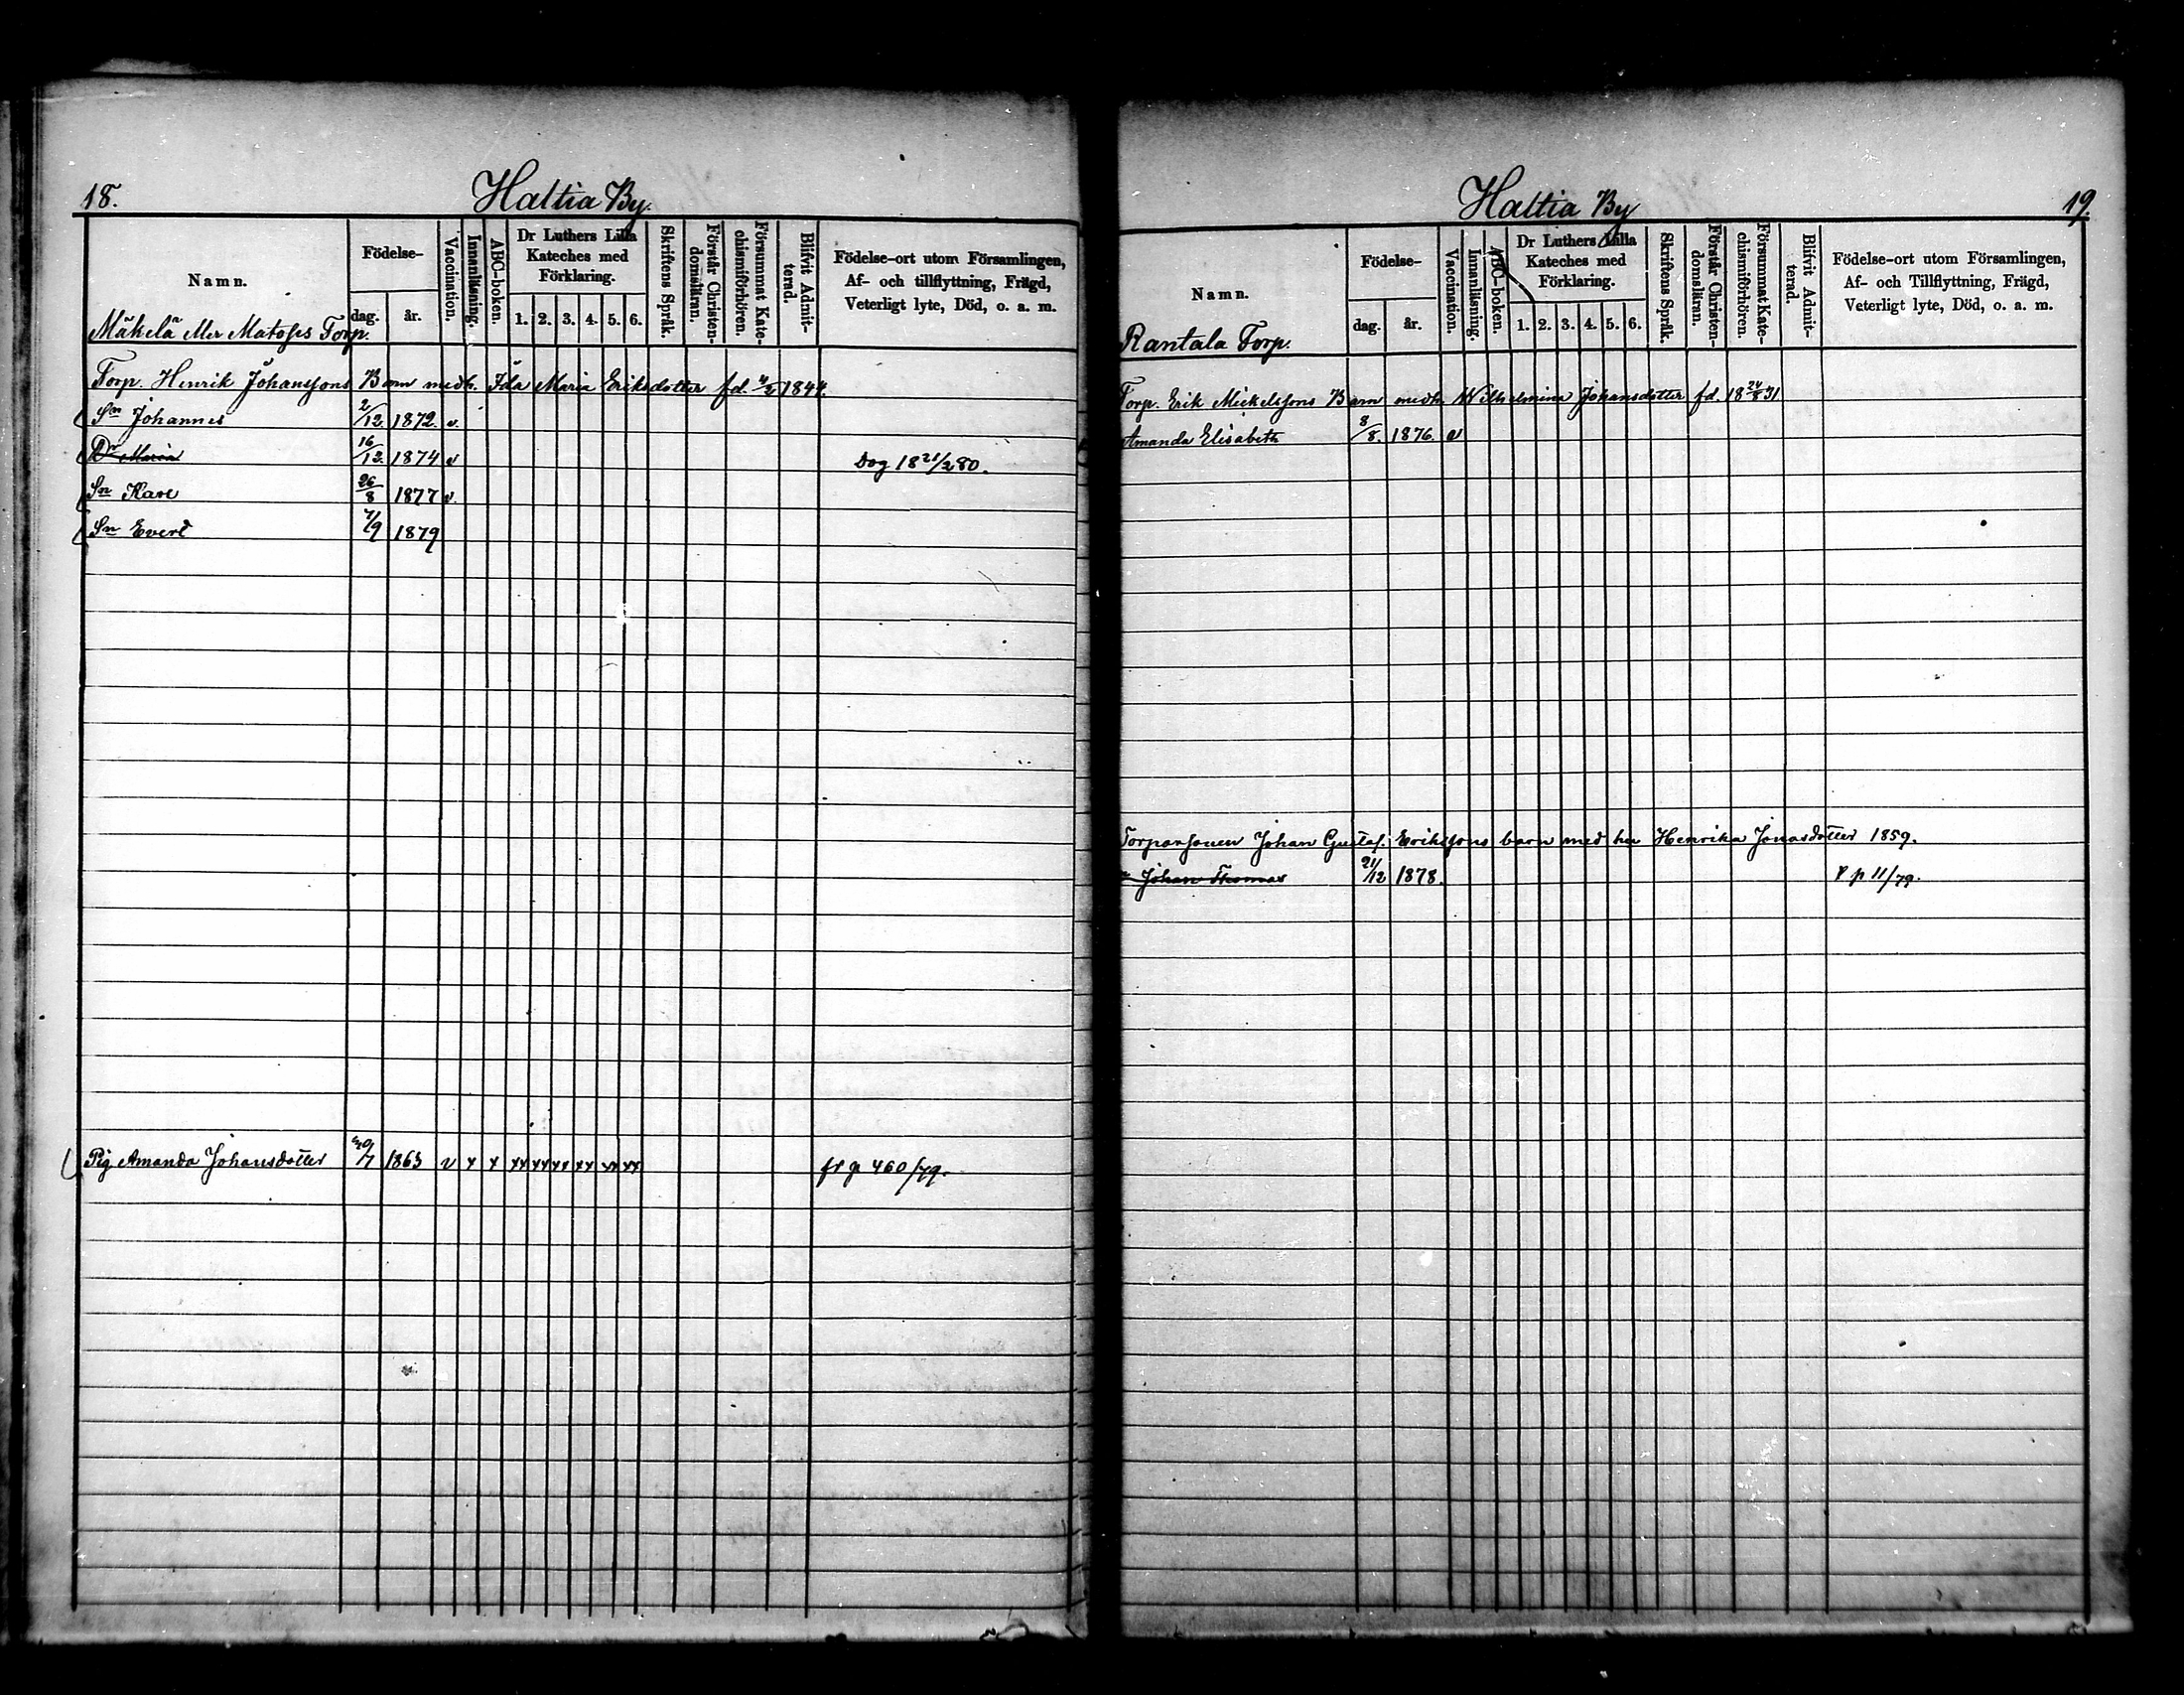 18.
Haltia By.
Namn.
Födelse-
dag.
år.
Vaccination.
Innanläsning.
ABC-boken.
Dr Luthers Lilla
Kateches med
Förklaring.
1. 2. 3. 4. 5. 6.
Skriftens Språk.
Förstår Christen-
domsläran.
Försummat Kate-
chismiförhören.
Blifvit Admit-
terad.
Födelse-ort utom Församlingen,
Af- och tillflyttning, Frägd,
Veterligt lyte, Död, o. a. m.
Mäkelä eller Torp.
Torp. Henrik Johanssons Barn medh. Ida Maria Eriksdotter fd. 1844.
Sn Johannes 2/12 1872. v.
Dr Maria 16/12. 1874 v Dog 18 21/2 80.
Sn Karl 26/8 1877 v.
Sn Evert 7/9 1879
Pig Amanda Johansdotter 20/7 1863 v x x xx xx xx xx xx xx 460/79.
Haltia By
19.
Namn.
Födelse-
dag.
år.
Vaccination.
Innanläsning.
ABC-boken.
Dr Luthers Lilla
Kateches med
Förklaring.
1. 2. 3. 4. 5. 6.
Skriftens Språk.
Förstår Christen-
domsläran.
Försummat Kate-
chismiförhören.
Blifvit Admit-
terad.
Födelse-ort utom Församlingen,
Af- och Tillflyttning, Frägd,
Veterligt lyte, Död, o. a. m.
Rantala Torp.
Torp. Erik Mickelssons Barn medh. Wilhelmina Johansdotter fd. 18 24/8 31
Amanda Elisabeth 8/8. 1876. v
Torparsonen Johan Gustaf Erikssons barn med hu Henrika Jonasdotter 1859.
Johan Thomas 21/12 1878. p 11/79.